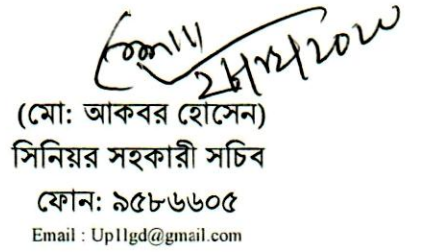 (মো: আকবর হোসেন)
সিনিয়র সহকারী সচিব
ফোন: ৯৫৮৬৬০৫
Email : Up1lgd@gmail.com